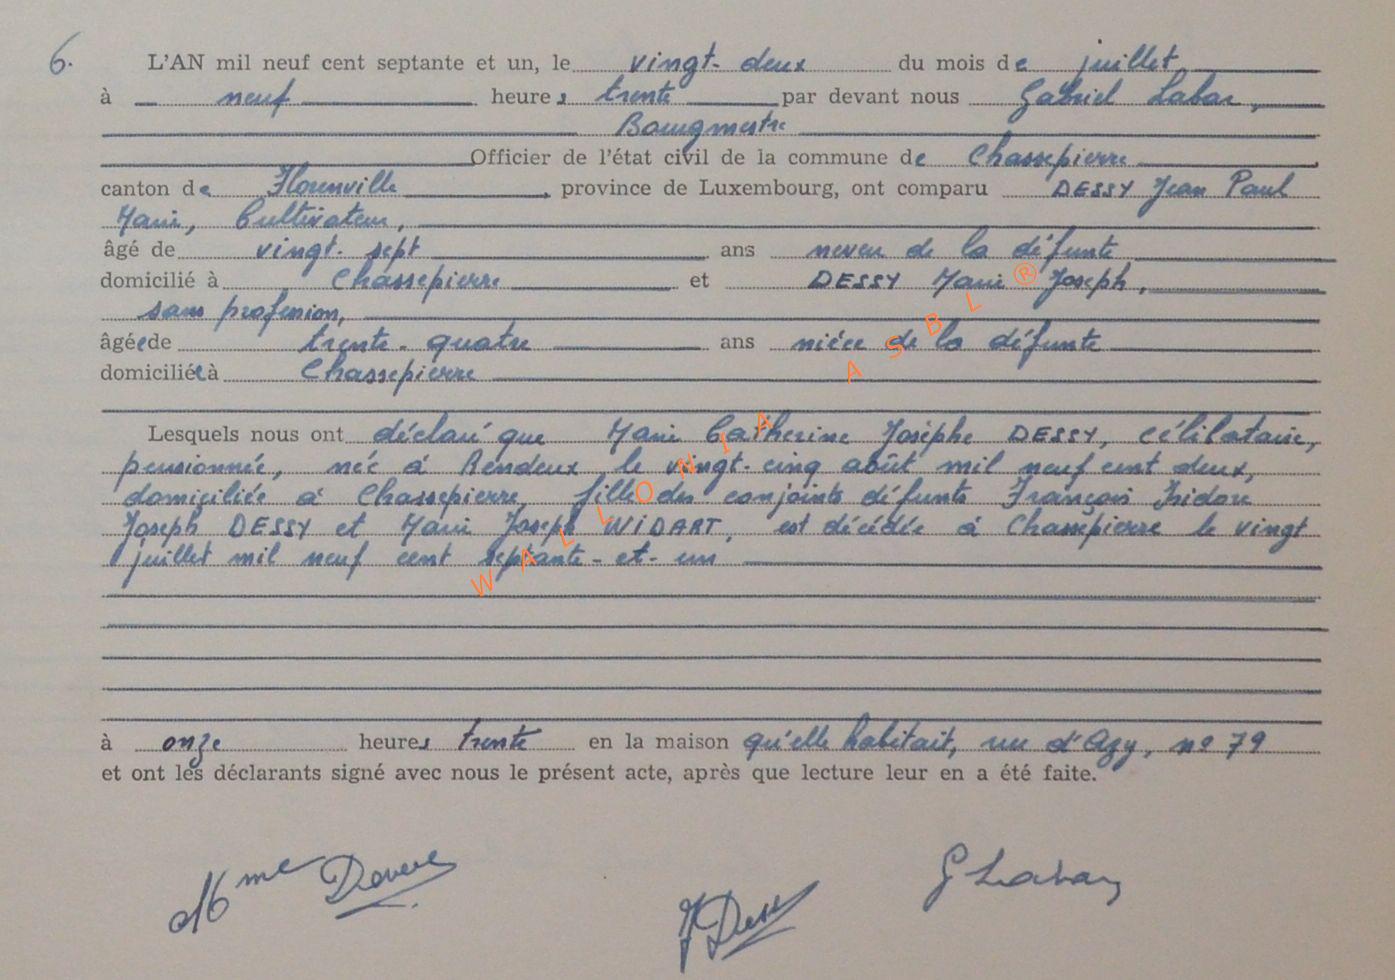 6. L'AN mil neuf cent septante et un, le vingt-deux du mois de juillet
à neuf heures trente par devant nous Gabriel Labar,
Bourgmestre
Officier de l'état civil de la commune de Chassepierre
canton de Florenville, province de Luxembourg, ont comparu DESSY Jean Paul
Marie, Cultivateur,
âgé de vingt-sept ans neveu de la défunte
domicilié à Chassepierre et DESSY Marie Joseph,
sans profession,
âgée de trente-quatre ans nièce de la défunte
domiciliée à Chassepierre
Lesquels nous ont déclaré que Marie Catherine Josèphe DESSY, célibataire,
pensionnée, née à Rendeux le vingt-cinq août mil neuf cent deux,
domiciliée à Chassepierre, fille des conjoints défunts François Isidore
Joseph DESSY et Marie Joseph WIDART, est décédée à Chassepierre le vingt
juillet mil neuf cent septante-et-un
à onze heures trente en la maison qu'elle habitait, rue d'Azy, n° 79
et ont les déclarants signé avec nous le présent acte, après que lecture leur en a été faite.
WALLONIA ASBL ®
Mme